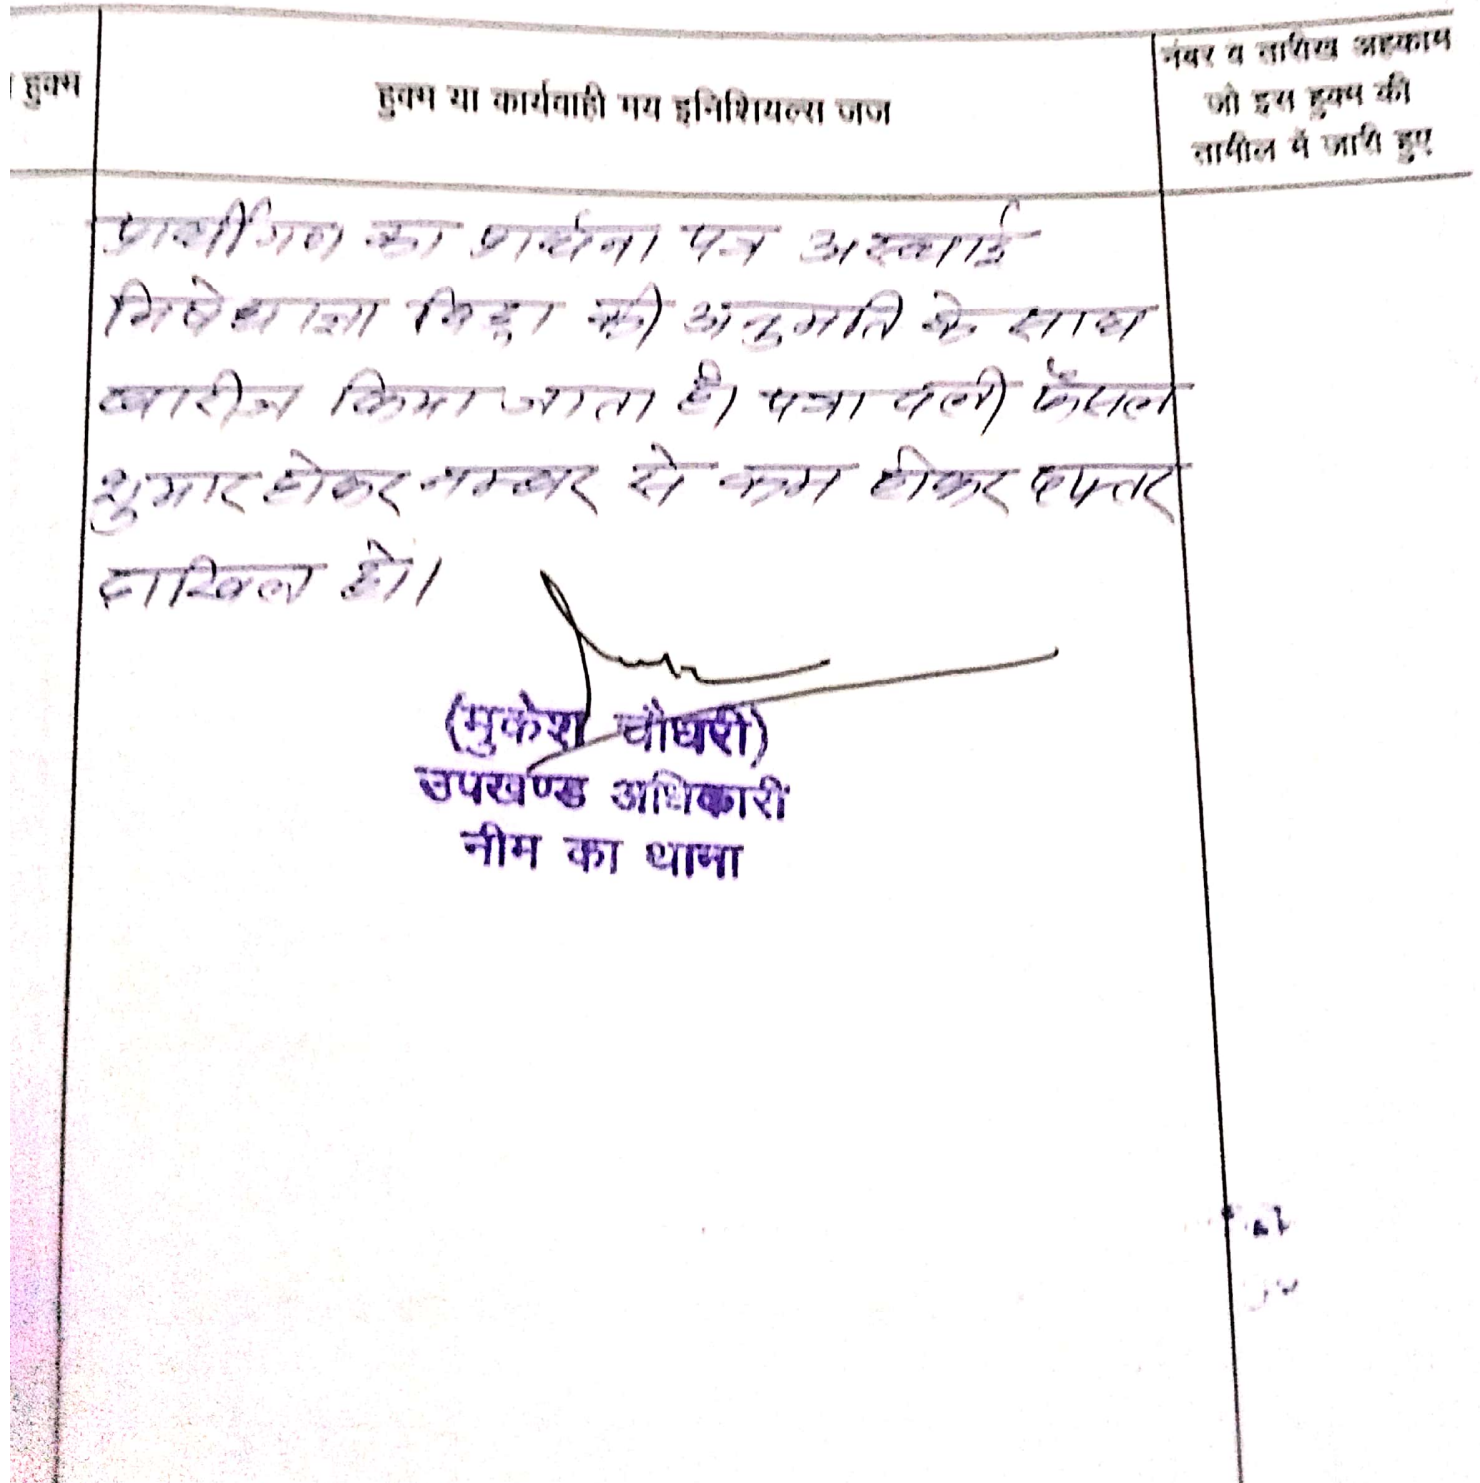 हुक्म
हुक्म या कार्यवाही मय इनिशियल्स जज
नंबर व तारीख अहकाम
जो इस हुक्म की
तामील में जारी हुए
प्रार्थीगण का प्रार्थना पत्र अस्थाई
निषेधाज्ञा विड्रा की अनुमति के साथ
खारीज किया जाता है। पत्रावली फैसल
शुमार होकर नम्बर से कम होकर दफ्तर
दाखिल हो।
(मुकेश चौधरी)
उपखण्ड अधिकारी
नीम का थाना